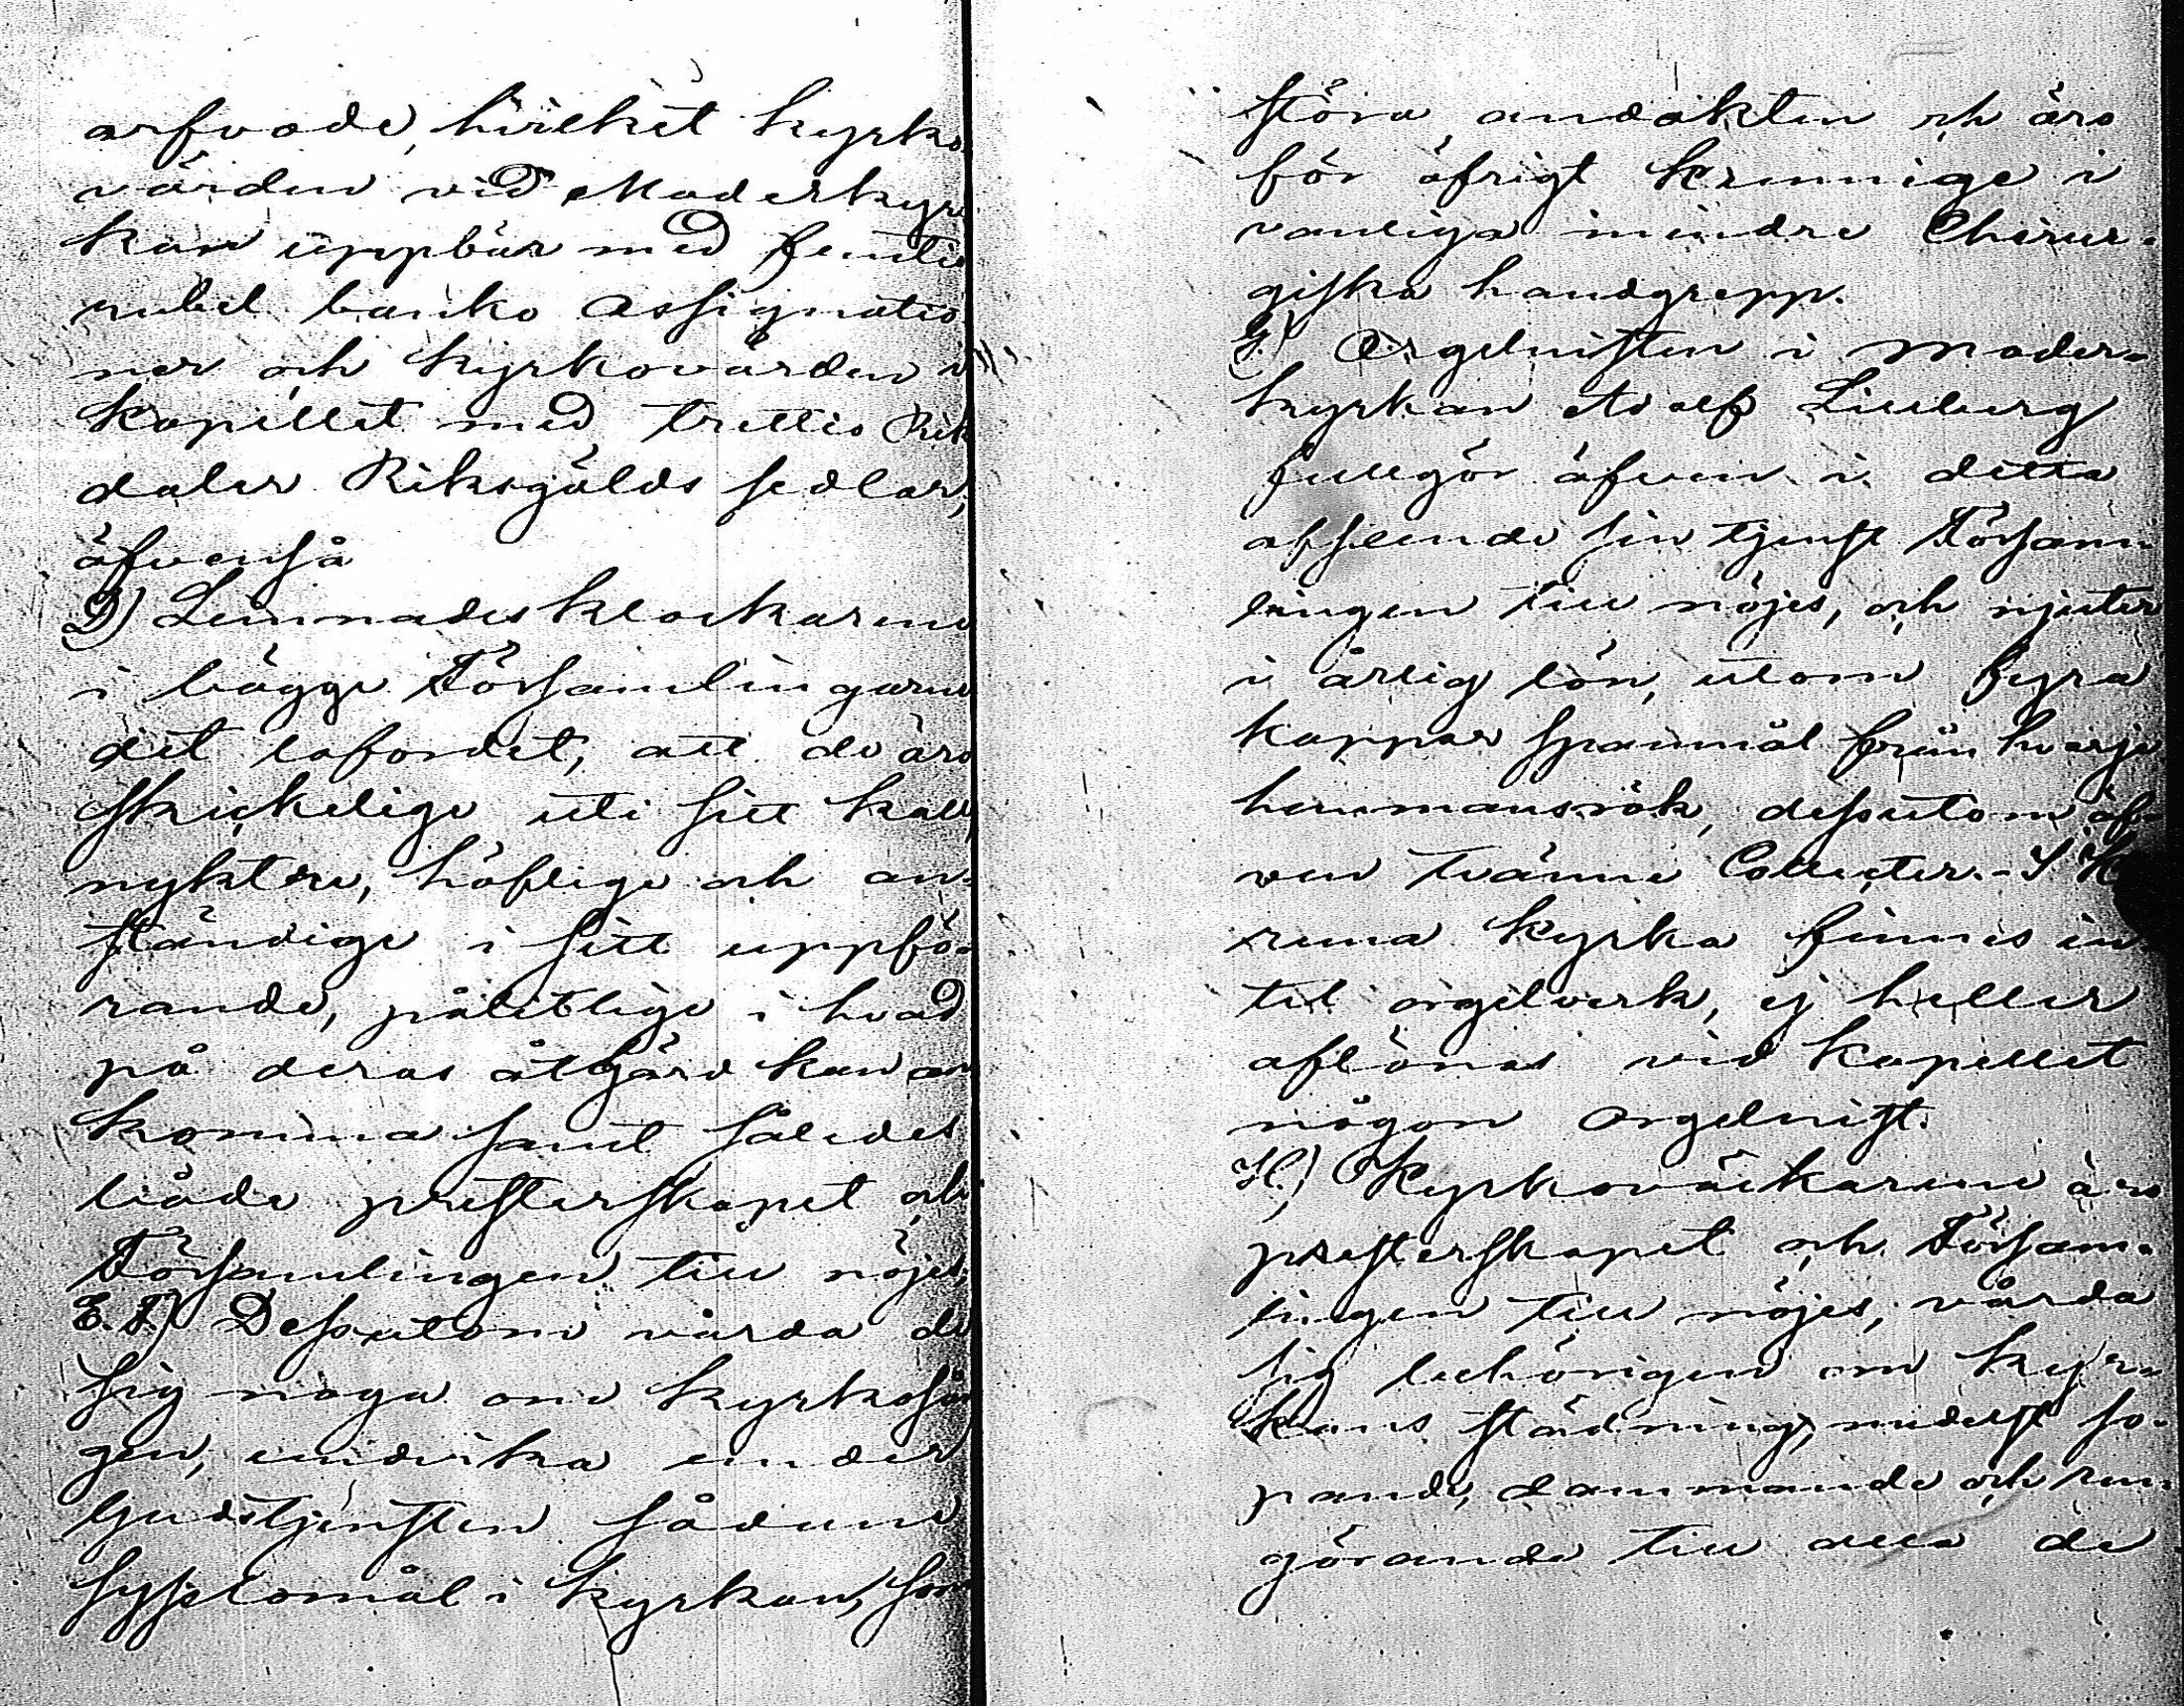 arfvode, hvilket kyrko
vården vid Moderkyr
kan uppbär med femtio
rubel banko Assignatio
ner och kyrkovärden i
Kapellet med trettio Rik
daler Riksgälds sedlar,
äfvenså
D) Lemnades klockarene
i bägge Församlingarne
det lofordet, att de äro
skickelige uti sitt kall,
nyktere, höflige och an-
ständige i sitt uppfö-
rande, pålitlige i hvad
på deras åtgärd kan an
komma samt således
både presterskapet och
Församlingen till nöjes,
E. F.) Dessutom vårda de
sig noga om kyrkosån
gen, undvika under
Gudstjensten sådane
sysslomål i kyrkan, som
störa andakten och äro
för öfrigt kunnige i
vanliga mindre Chirur-
giska handgrepp.
G.) Orgelnisten i Moder-
kyrkan Adolf Lilleberg
fullgör äfven i detta
afseende sin tjenst Försam
lingen till nöjes, och njuter
i årlig lön, utom fyra
kappar spannmål från hvarje
hemmansrök, dessutom äf-
ven tvänne Collecter. - I
kyrka finnes in
tet orgelverk, ej heller
aflönas vid Kapellet
någon orgelnist.
H.) Kyrkoväktarene äro
presterskapet och Försam-
lingen till nöjes, vårda
sig behörigen om kyr-
kans städning, medelst so-
pande, dammande och ren
görande till alla de